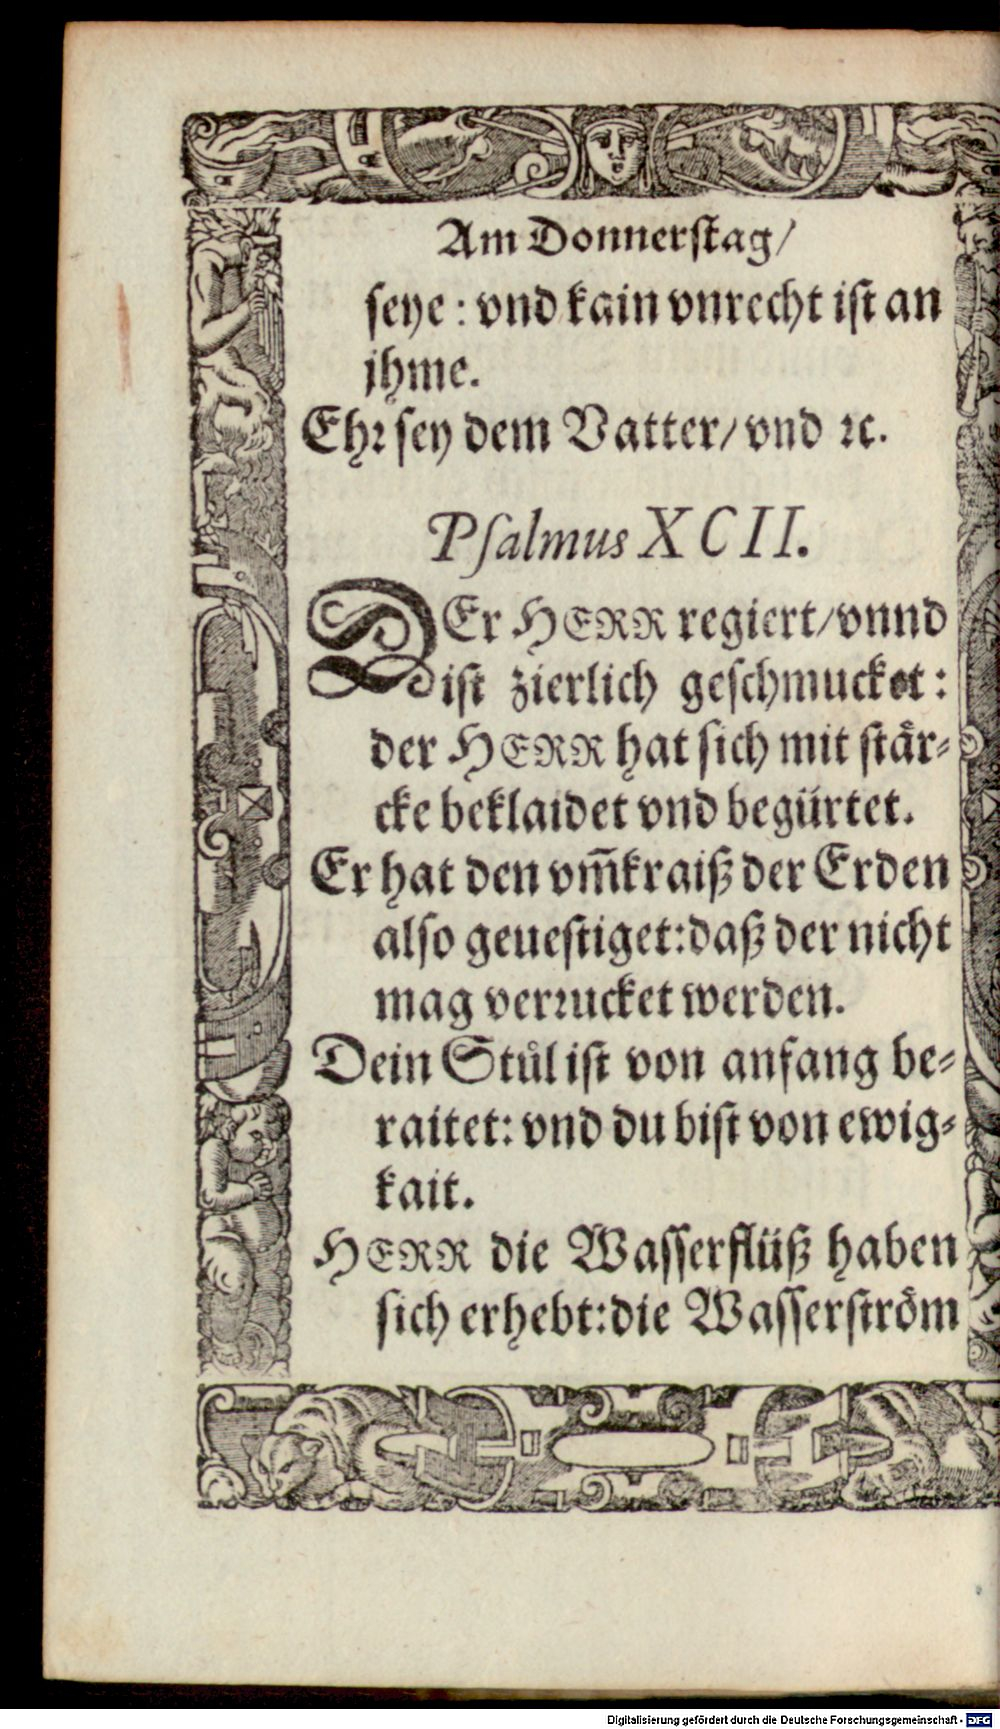 Am Donnerſtag/
ſeye: vnd kain vnrecht iſt an
jhme.
Ehꝛ ſey dem Vatter/ vnd ꝛc.
Pſalmus XCII.
DEr HERR regiert/ vnnd
iſt zierlich geſchmucket:
der HERR hat ſich mit ſtår⸗
cke beklaidet vnd begürtet.
Er hat den vm̃kraiß der Erden
alſo geueſtiget: daß der nicht
mag verꝛucket werden.
Dein Stůl iſt von anfang be⸗
raitet: vnd du biſt von ewig⸗
kait.
HERR die Waſſerflüß haben
ſich erhebt: die Waſſerſtröm
Digitalisierung gefördert durch die Deutsche Forschungsgemeinschaft - DFG